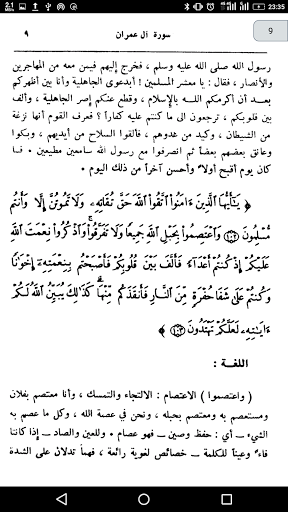 23:35
9
سورة آل عمران
٩
رسول الله صلى الله عليه وسلم ، فخرج إليهم فيمن معه من المهاجرين
والأنصار ، فقال : يا معشر المسلمين ! أبدعوى الجاهلية وأنا بين أظهركم
بعد أن أكرمكم الله بالإسلام ، وقطع عنكم إصر الجاهلية ، وألف
بين قلوبكم ، ترجعون الى ما كنتم عليه كفاراً ؟ فعرف القوم أنها نزغة
من الشيطان ، وكيد من عدوهم ، فألقوا السلاح من أيديهم ، وبكوا
وعانق بعضهم بعضاً ثم انصرفوا مع رسول الله سامعين مطيعين . فما
كان يوم أقبح أولاً وأحسن آخراً من ذلك اليوم .
﴿ يَٰٓأَيُّهَا ٱلَّذِينَ ءَامَنُوا۟ ٱتَّقُوا۟ ٱللَّهَ حَقَّ تُقَاتِهِۦ وَلَا تَمُوتُنَّ إِلَّا وَأَنتُم
مُّسْلِمُونَ ﴿١٠٢﴾ وَٱعْتَصِمُوا۟ بِحَبْلِ ٱللَّهِ جَمِيعًا وَلَا تَفَرَّقُوا۟ وَٱذْكُرُوا۟ نِعْمَتَ ٱللَّهِ
عَلَيْكُمْ إِذْ كُنتُمْ أَعْدَآءً فَأَلَّفَ بَيْنَ قُلُوبِكُمْ فَأَصْبَحْتُم بِنِعْمَتِهِۦٓ إِخْوَٰنًا
وَكُنتُمْ عَلَىٰ شَفَا حُفْرَةٍ مِّنَ ٱلنَّارِ فَأَنقَذَكُم مِّنْهَا كَذَٰلِكَ يُبَيِّنُ ٱللَّهُ لَكُمْ
ءَايَٰتِهِۦ لَعَلَّكُمْ تَهْتَدُونَ ﴿١٠٣﴾
اللغة :
( واعتصموا ) الاعتصام : الالتجاء والتمسك ، وأنا معتصم بفلان
ومستعصم به ومعتصم بحبله ، ونحن في عصمة الله ، وكل ما عصم به
الشيء ــ أي : حفظ وصين ــ فهو عصام . وللعين والصاد ــ إذا كانتا
فاءً وعيناً للكلمة ــ خصائص لغوية رائعة ، فهما تدلان على الشدة